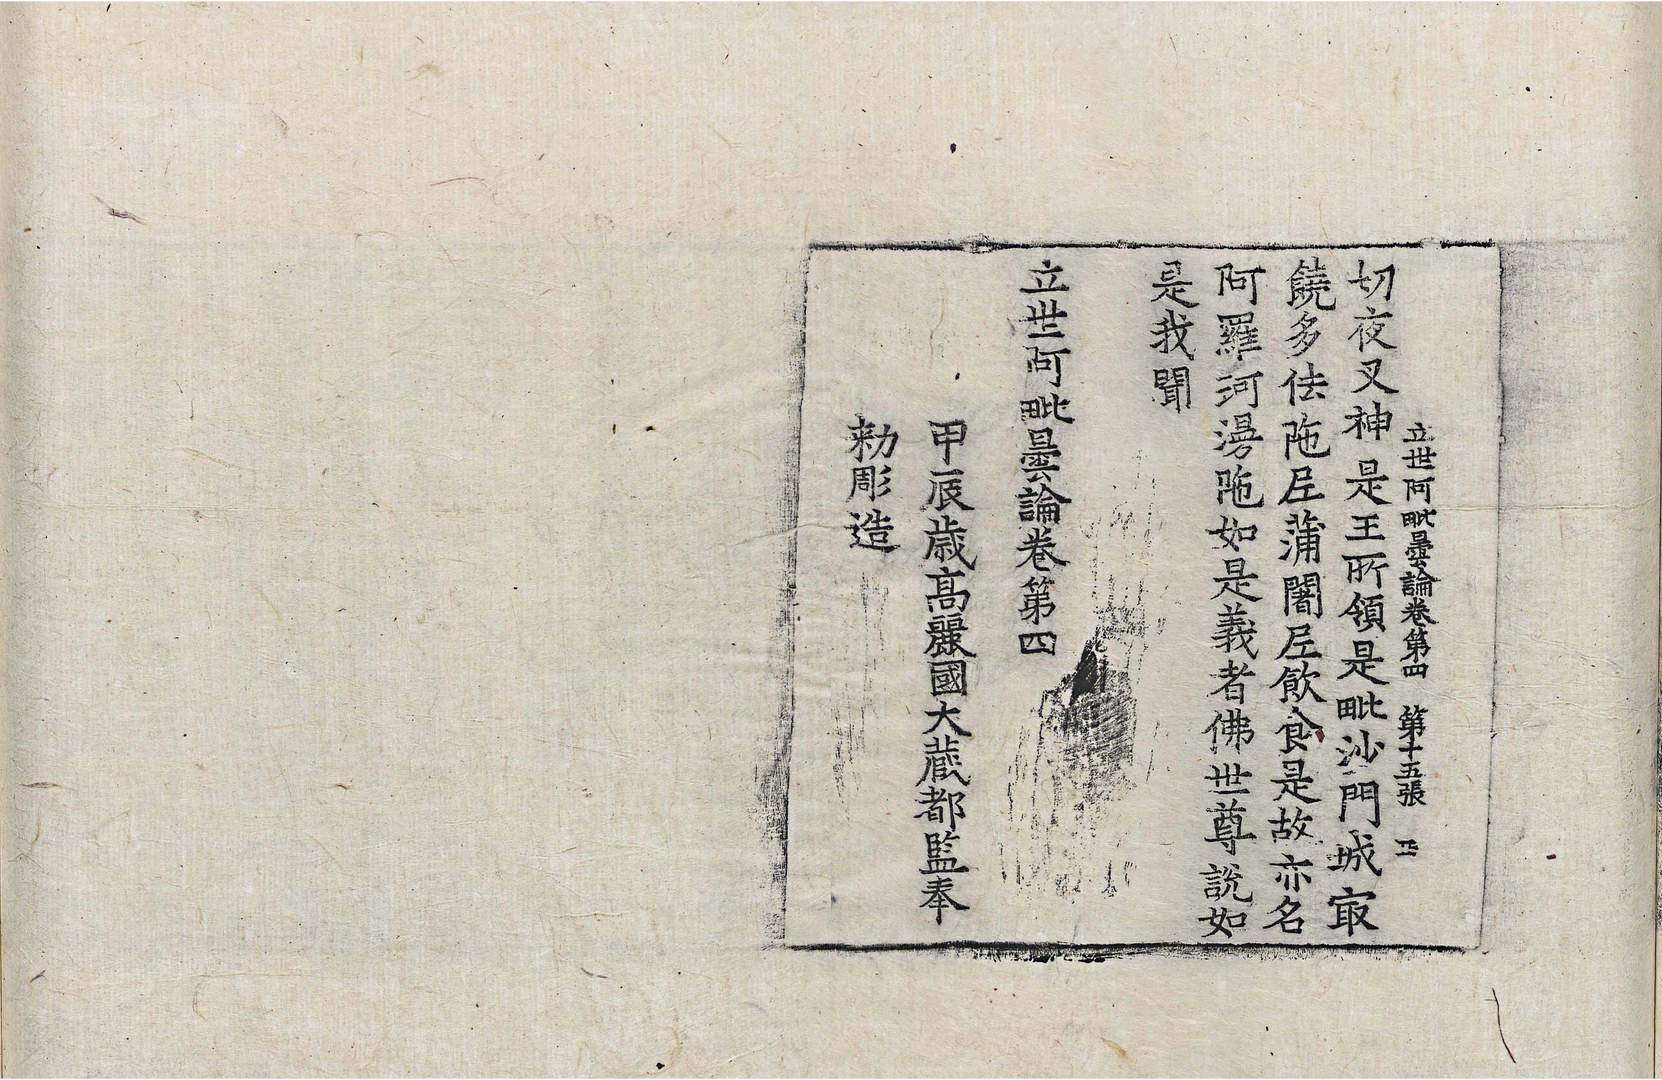 立世阿毗曇論卷第四　第十五張
切夜叉神是王所領是毗沙門城㝡
饒多佉陁𡰱蒲闍𡰱飲食是故亦名
阿羅河漫陁如是義者佛世尊說如
是我聞
立世阿毗曇論卷第四
甲辰歲高麗國大藏都監奉
勅彫造